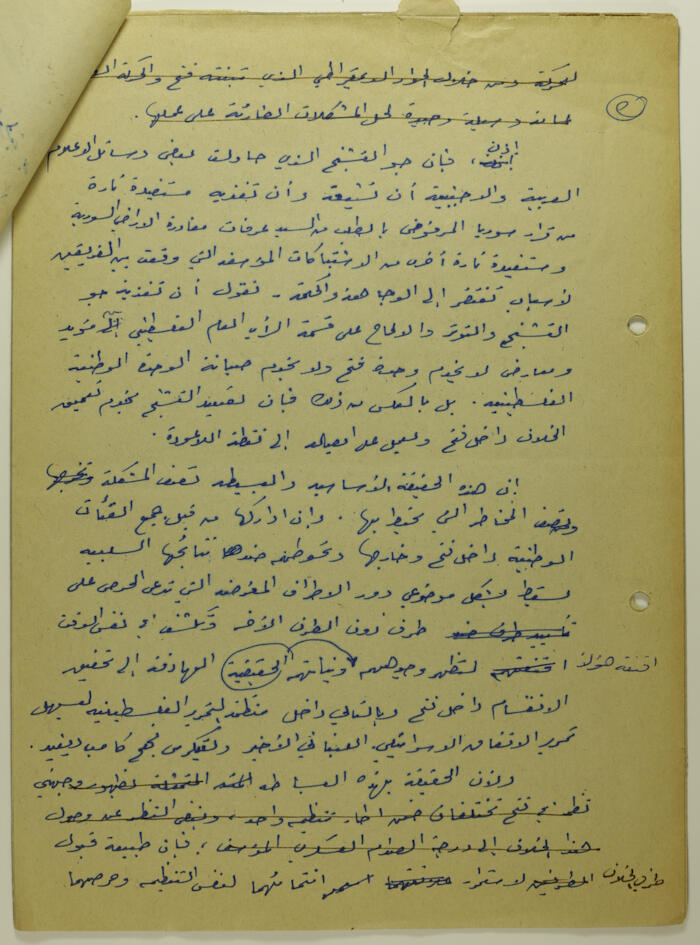 للحركة ومن خلال الحوار الديمقراطي الذي تبنته فتح والحركة
وسيلة وحيدة لحل المشكلات الطارئة على عملها.
إذن
فإن جو التشنج الذي حاولت بعض وسائل الاعلام
العربية والاجنبية أن تشيعه وأن تغذيه مستفيدة تارة
من قرار سوريا المرفوض بالطلب من السيد عرفات مغادرة الاراضي السورية
ومستفيدة تارة أخرى من الاشتباكات المؤسفة التي وقعت بين الفريقين
لأسباب تفتقر إلى الوجاهة والحكمة - نقول أن تغذية جو
التشنج والتوتر والالحاح على قسمة الرأي العام الفلسطيني إلى مؤيد
ومعارض لا يخدم وحدة فتح ولا يخدم صيانة الوحدة الوطنية
الفلسطينية. بل بالعكس من ذلك فإن تصعيد التشنج يخدم تعميق
الخلاف داخل فتح ويعمل على ايصاله إلى نقطة اللاعودة.
إن هذه الحقيقة الأساسية والبسيطة تصف المشكلة
وتصف المخاطر التي تحيط بها. وإن ادراكها من قبل جميع القوات
الوطنية داخل فتح وخارجها وتحوطهم ضد نتائجها السلبية
يسقط بشكل موضوعي دور الاطراف المغرضة التي تدعي الحرص على
طرف دون الطرف الآخر وتكشف في نفس الوقت
اقنعة هؤلاء لتظهر وجوههم ونياتهم الحقيقية الهادفة إلى تحقيق
الانقسام داخل فتح وبالتالي داخل منظمة التحرير الفلسطينية ليسهل
تمرير الاتفاق الاسرائيلي اللبناني الأخير وتكريس نهج كامب ديفيد.
ولأن الحقيقة بهذه البساطة المتمثلة لظهور وجهتي
نظر في فتح تختلفان ضمن اطار تنظيم واحد، وبغض النظر عن وصول
هذا الخلاف إلى درجة الصدام العسكري المؤسف، فإن طبيعة قبول
طرفي الخلاف لاستمرار انتمائهما لنفس التنظيم وحرصهما